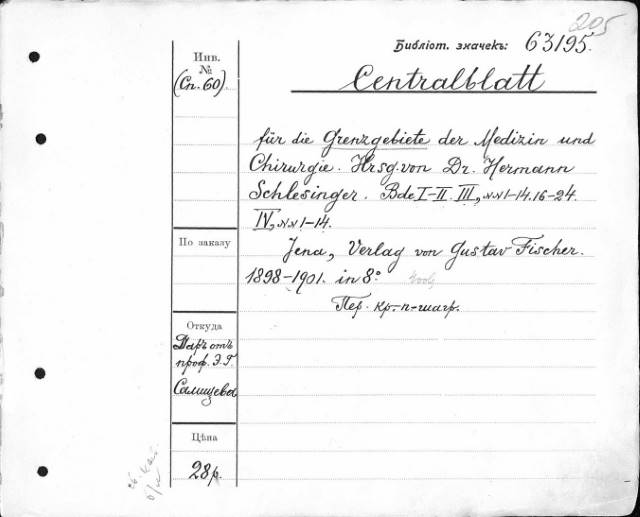 205
Библіот. значекъ: 63195.
Инв.
№
(Сп. 60)
Centralblatt
für die Grenzgebiete der Medizin und
Chirurgie. Hrsg. von Dr. Hermann
Schlesinger. Bde I-II. III, NN 1-14. 16-24.
IV, NN 1-14.
По заказу
Jena, Verlag von Gustav Fischer.
1898-1901. in 8°.
Пер. кр.-п-шагр.
Откуда
Даръ отъ
проф. Э.Г.
Салищева
Цѣна
28р.